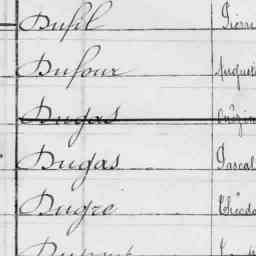 Dufil Pierre
Dufour August
Dugas
Dugas Pascal
Dugré Théodo